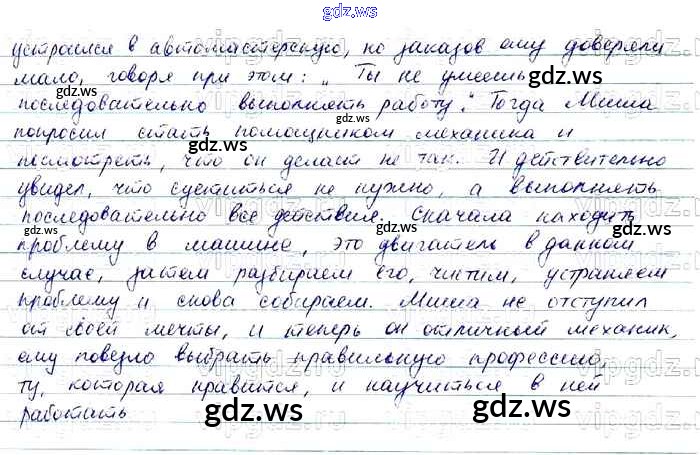 gdz.ws
gdz.ws
устроился в автомастерскую, но заказов ему доверяли
мало, говоря при этом: „Ты не умеешь
gdz.ws
последовательно выполнять работу." Тогда Миша
попросил стать помощником механика и
gdz.ws
gdz.ws
посмотреть, что он делает не так. И действительно
увидел, что суетиться не нужно, а выполнять
последовательно все действия. Сначала находить
gdz.ws
проблему в машине, это двигатель в данном
gdz.ws
случае, затем разбираем его, чистим, устраняем
проблему и снова собираем. Миша не отступил
от своей мечты, и теперь он отличный механик,
gdz.ws
ему повезло выбрать правильную профессию,
ту, которая нравится, и научиться в ней
работать
gdz.ws
gdz.ws
gdz.ws